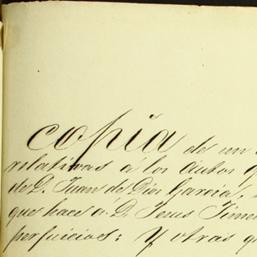 copia de un
relativas á los autos
de D. Juan de Dios García,
que hace á D. Jesus Jime
perjuicios: Y otras q